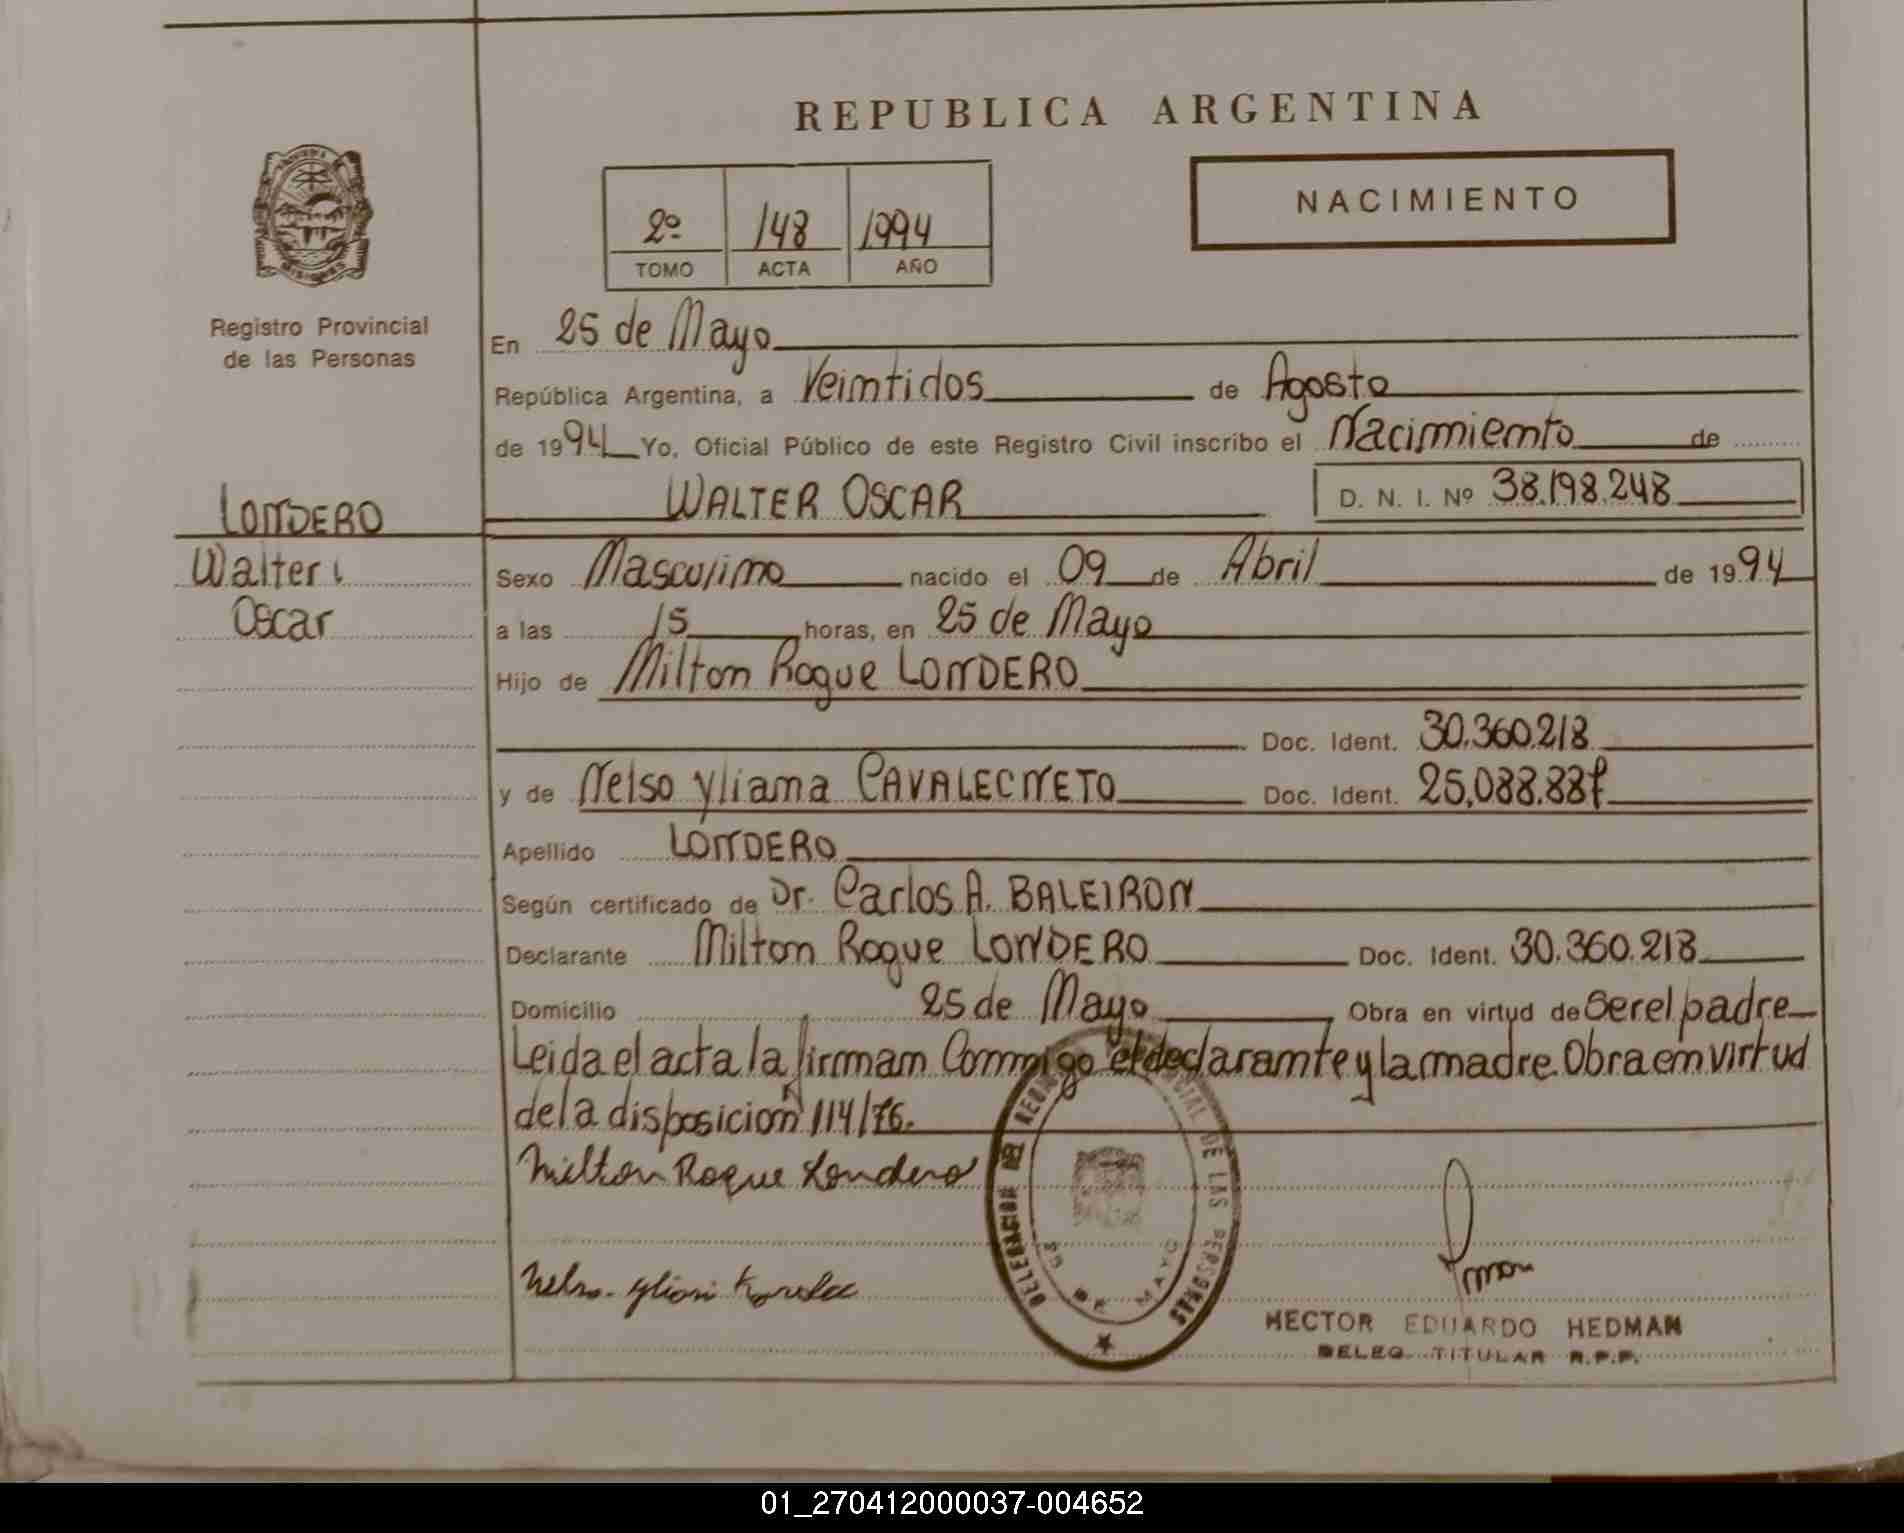 REPUBLICA ARGENTINA
NACIMIENTO
2º 148 1994
TOMO ACTA AÑO
Registro Provincial
de las Personas
En 25 de Mayo
República Argentina, a Veintidos de Agosto
de 1994 Yo, Oficial Público de este Registro Civil inscribo el Nacimiento de
LONDERO
WALTER OSCAR D. N. I. Nº 38.198.248
Walter
Oscar
Sexo Masculino nacido el 09 de Abril de 1994
a las 15 horas, en 25 de Mayo
Hijo de Milton Roque LONDERO
Doc. Ident. 30.360.218
y de Nelso Yliana CAVALECNETO Doc. Ident. 25.088.88
Apellido LONDERO
Según certificado de Dr. Carlos A. BALEIRON
Declarante Milton Roque LONDERO Doc. Ident. 30.360.218
Domicilio 25 de Mayo Obra en virtud de Ser el padre
Leida el acta la firman Conmigo el declarante y la madre. Obra en virtud
de la disposicion 114/76.
Milton Roque Londero
DELEGACION DEL REGISTRO PROVINCIAL DE LAS PERSONAS
25 DE MAYO
HECTOR EDUARDO HEDMAN
DELEG. TITULAR R.P.P.
01_270412000037-004652